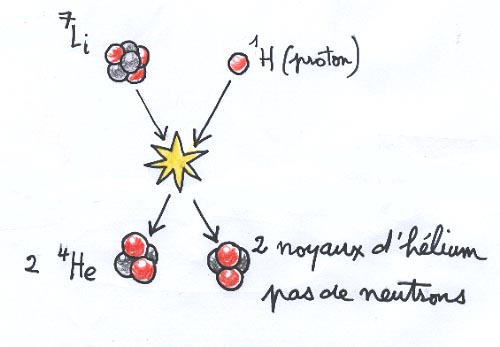 ⁷Li
¹H (proton)
2 ⁴He
2 noyaux d'hélium
pas de neutrons